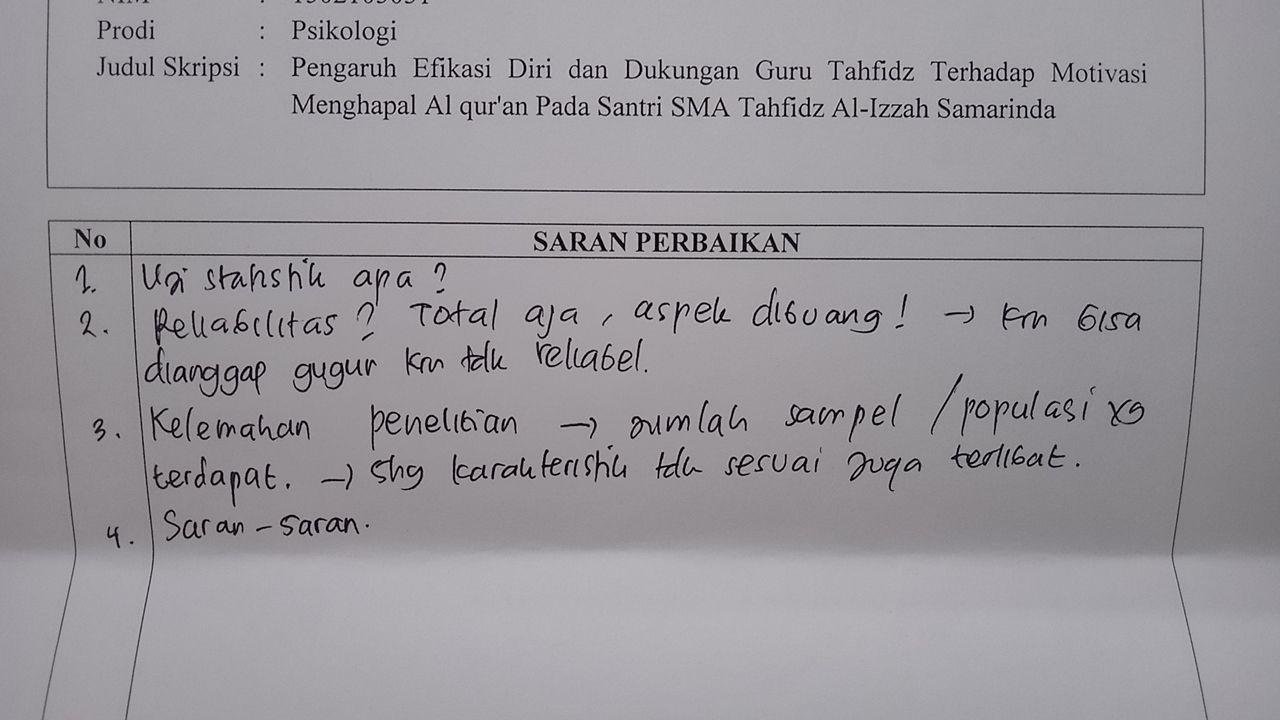 Prodi : Psikologi
Judul Skripsi : Pengaruh Efikasi Diri dan Dukungan Guru Tahfidz Terhadap Motivasi
Menghapal Al qur'an Pada Santri SMA Tahfidz Al-Izzah Samarinda
No SARAN PERBAIKAN
1. Uji statistik apa ?
2. Reliabilitas ? Total aja , aspek dibuang ! → krn bisa
dianggap gugur krn tdk reliabel.
3. Kelemahan penelitian → jumlah sampel / populasi yg
terdapat. → shg karakteristik tdk sesuai juga terlibat.
4. Saran - saran.